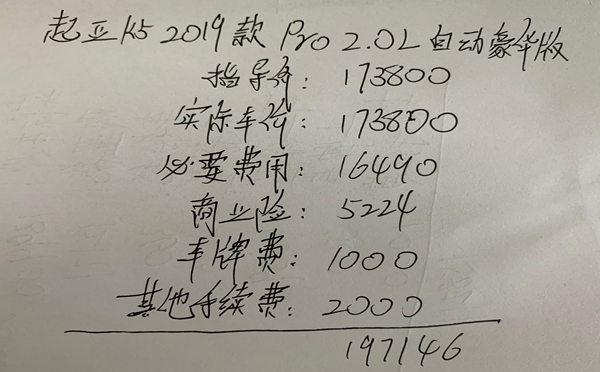 起亚K5 2019款 Pro 2.0L自动豪华版
指导价：173800
实际车价：173800
必要费用：16490
商业险：5224
车牌费：1000
其他手续费：2000
197146